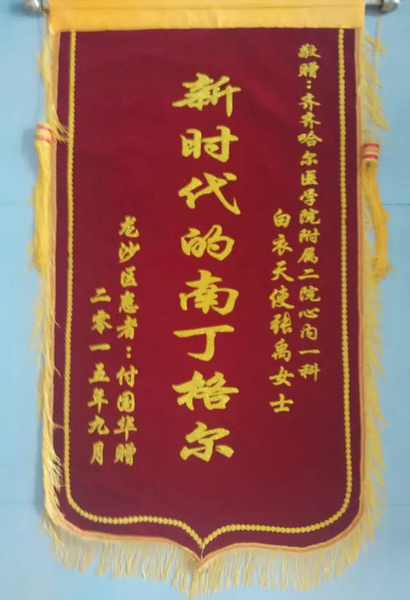 敬赠：齐齐哈尔医学院附属二院心内一科
白衣天使张禹女士
新时代的南丁格尔
龙沙区患者：付国华赠
二零一五年九月